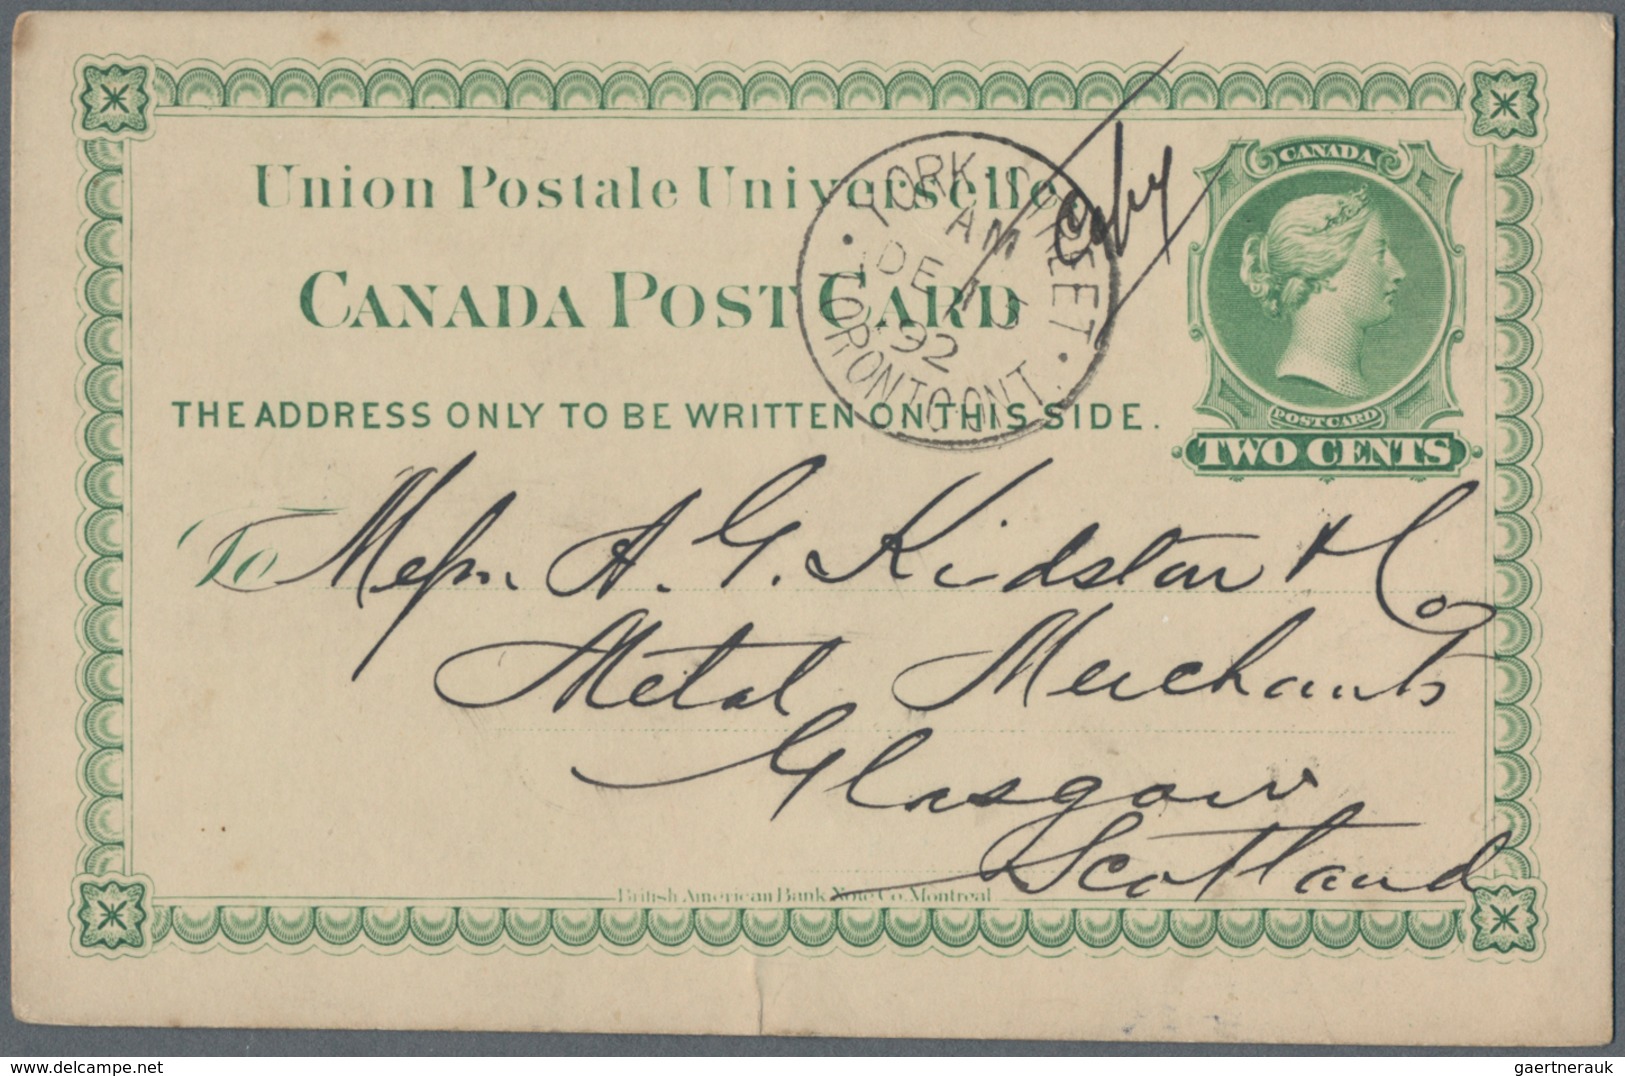 Union Postale Universelle
CANADA POST CARD
THE ADDRESS ONLY TO BE WRITTEN ON THIS SIDE.
YORK STREET
AM
DE 15
92
TORONTO ONT.
Copy
CANADA
POST CARD
TWO CENTS
To Messrs. A. G. Kidston & Co
Metal Merchants
Glasgow
Scotland
British American Bank Note Co. Montreal
gaertnerauk